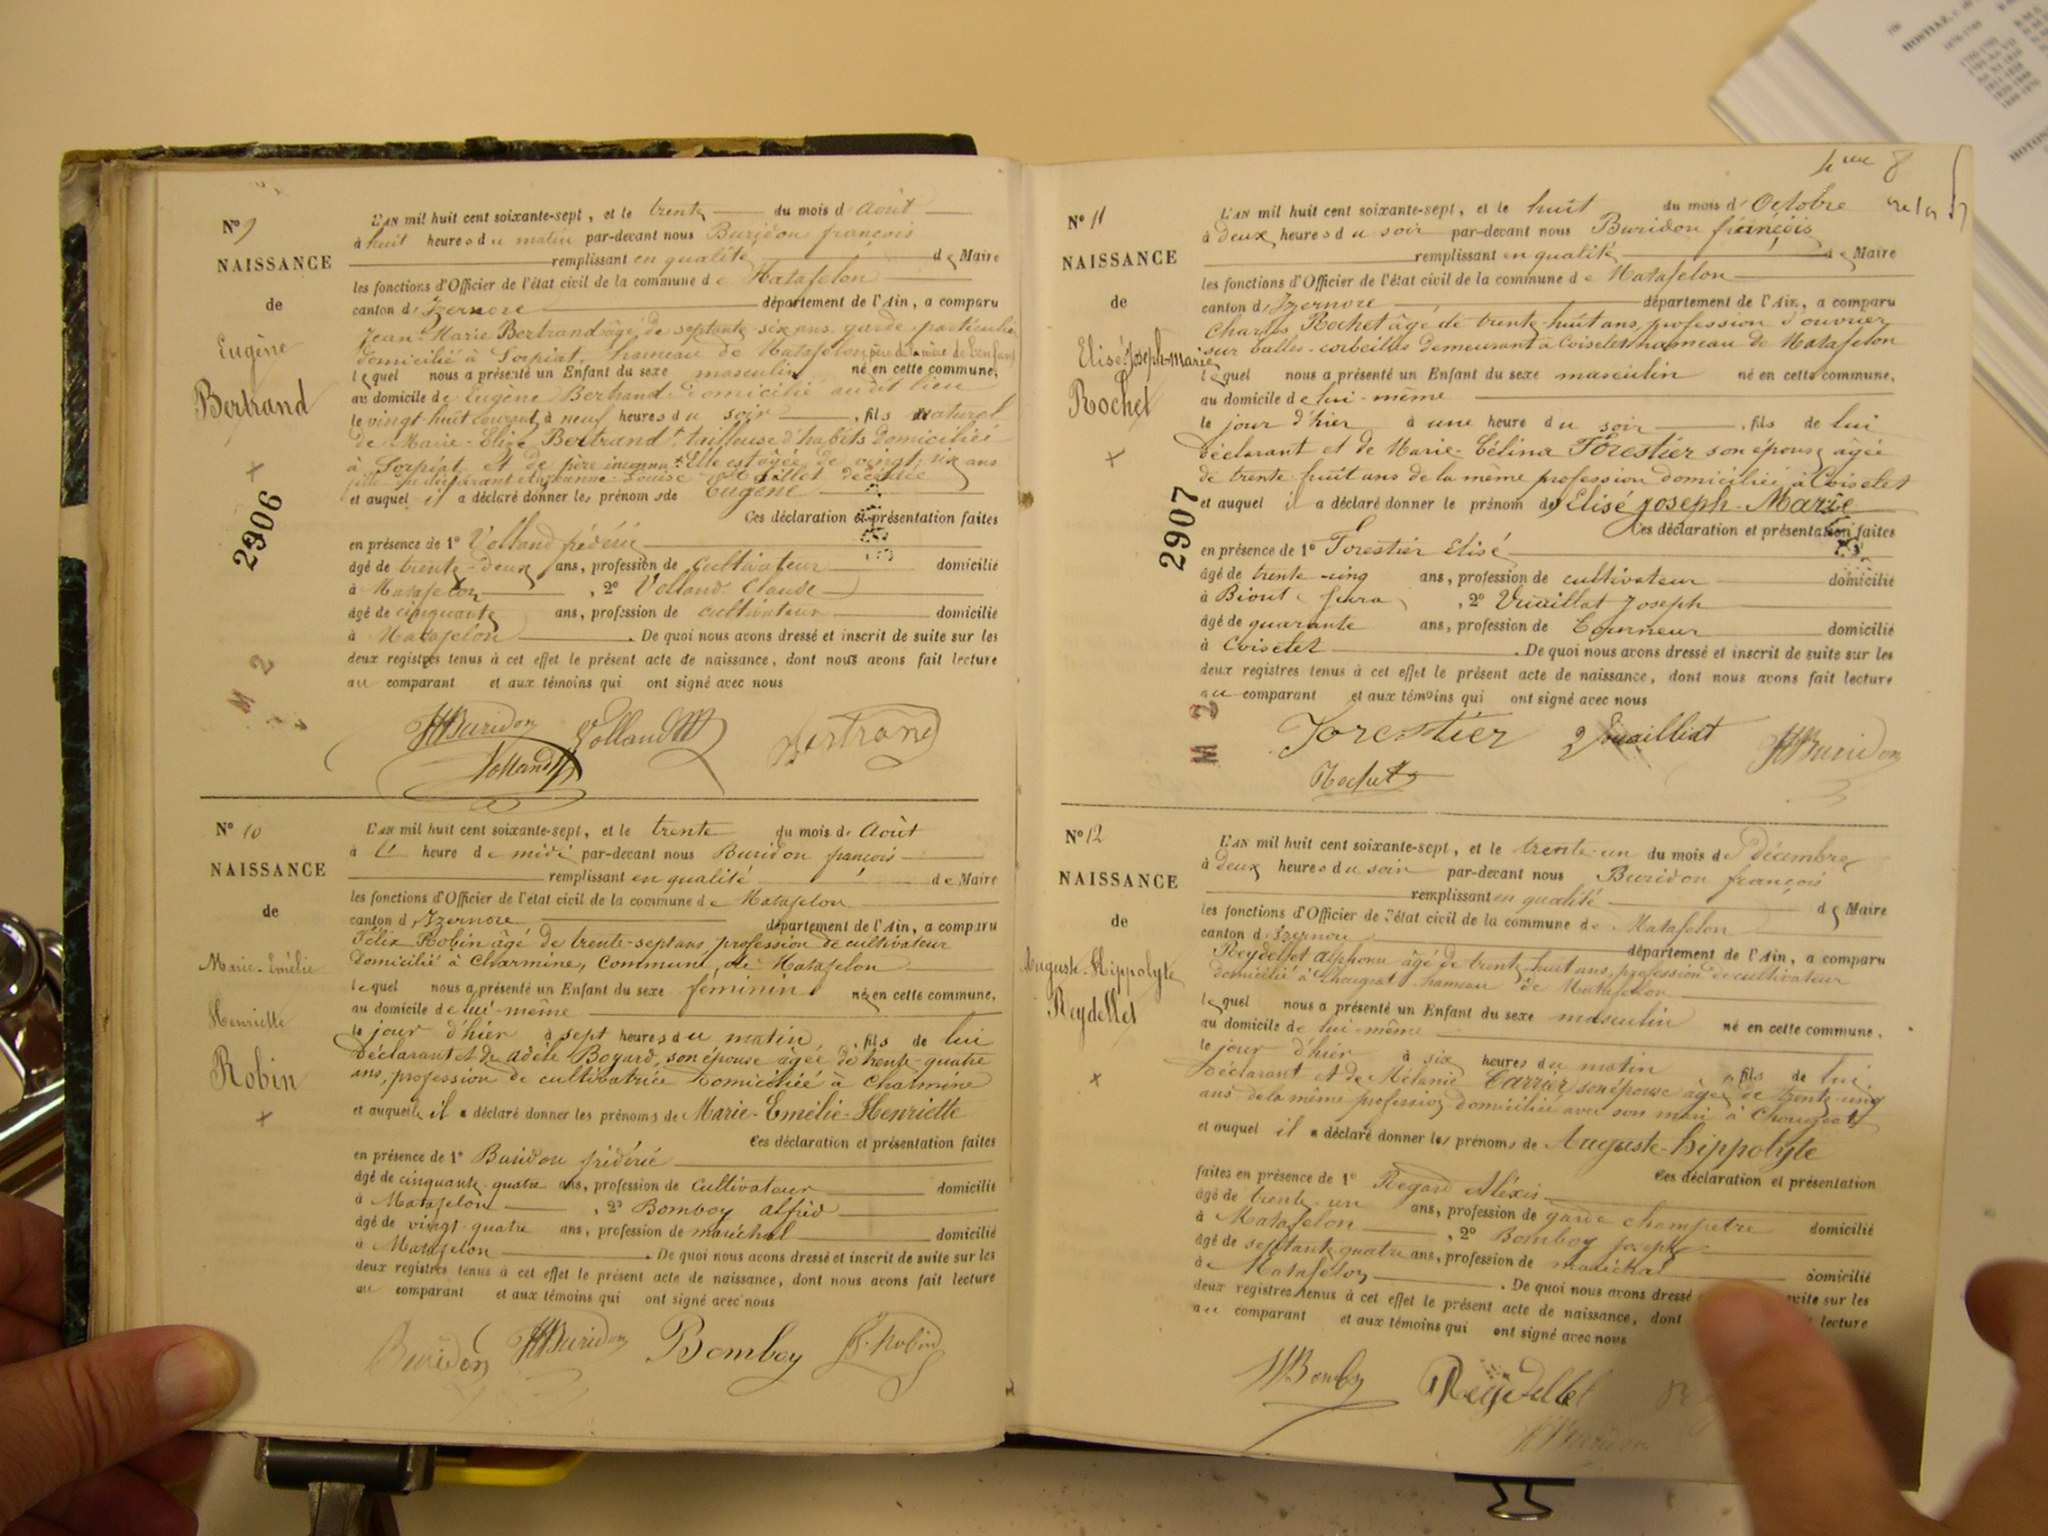 N° 9
NAISSANCE
de
Eugène
Bertrand
2906
M 2
L'AN mil huit cent soixante-sept, et le trente du mois d'Août
à huit heures du matin par-devant nous Buridon françois
remplissant en qualité de Maire
les fonctions d'Officier de l'état civil de la commune de Matafelon
canton d'Izernore département de l'Ain, a comparu
Jean-Marie Bertrand âgé de septante six ans garde particulier
domicilié à Corpiat, hameau de Matafelon père de la mère de l'enfant
lequel nous a présenté un Enfant du sexe masculin né en cette commune,
au domicile de Eugène Bertrand domicilié audit lieu
le vingt huit courant à neuf heures du soir, fils naturel
de Marie-Elize Bertrand tailleuse d'habits domiciliée
à Corpiat et de père inconnu. Elle est âgée de vingt six ans
fille du déclarant et Louise Maillet décédée
et auquel il a déclaré donner les prénoms de Eugène
Ces déclaration et présentation faites
en présence de 1° Volland frédéric
âgé de trente-deux ans, profession de cultivateur domicilié
à Matafelon, 2° Volland Claude
âgé de cinquante ans, profession de cultivateur domicilié
à Matafelon. De quoi nous avons dressé et inscrit de suite sur les
deux registres tenus à cet effet le présent acte de naissance, dont nous avons fait lecture
au comparant et aux témoins qui ont signé avec nous
Buridon Volland Bertrand
Volland
N° 10
NAISSANCE
de
Marie-Emélie
Henriette
Robin
L'AN mil huit cent soixante-sept, et le trente du mois de Août
à l' heure de midi par-devant nous Buridon françois
remplissant en qualité de Maire
les fonctions d'Officier de l'état civil de la commune de Matafelon
canton d'Izernore département de l'Ain, a comparu
Félix Robin âgé de trente-sept ans, profession de cultivateur
Domicilié à Charmine, Commune de Matafelon
lequel nous a présenté un Enfant du sexe feminin né en cette commune,
au domicile de lui-même
le jour d'hier à sept heures du matin, fils de lui
Déclarant et de Adèle Boyard, son épouse âgée de trente-quatre
ans, profession de cultivatrice Domiciliée à Charmine
et auquel il a déclaré donner les prénoms de Marie-Emélie-Henriette
Ces déclaration et présentation faites
en présence de 1° Buridon frédéric
âgé de cinquante-quatre ans, profession de cultivateur domicilié
à Matafelon, 2° Bomboy alfrid
âgé de vingt-quatre ans, profession de maréchal domicilié
à Matafelon. De quoi nous avons dressé et inscrit de suite sur les
deux registres tenus à cet effet le présent acte de naissance, dont nous avons fait lecture
au comparant et aux témoins qui ont signé avec nous
Buridon Buridon Bomboy Robin
8
N° 11
NAISSANCE
de
Elisé Joseph-marie
Rochet
2907
M 2
L'AN mil huit cent soixante-sept, et le huit du mois d'Octobre
à deux heures du soir par-devant nous Buridon françois
remplissant en qualité de Maire
les fonctions d'Officier de l'état civil de la commune de Matafelon
canton d'Izernore département de l'Ain, a comparu
Charles Rochet âgé de trente-huit ans, profession d'ouvrier
sur balles-corbeilles demeurant à Coiselet hameau de Matafelon
lequel nous a présenté un Enfant du sexe masculin né en cette commune,
au domicile de lui-même
le jour d'hier à une heure du soir, fils de lui
Déclarant et de Marie-Célina Forestier son épouse âgée
de trente huit ans de la même profession domiciliée à Coiselet
et auquel il a déclaré donner le prénom de Elisé Joseph-Marie
Ces déclaration et présentation faites
en présence de 1° Forestier Elisé
âgé de trente-cinq ans, profession de cultivateur domicilié
à Jura, 2° Vuaillat Joseph
âgé de quarante ans, profession de Tourneur domicilié
à Coiselet. De quoi nous avons dressé et inscrit de suite sur les
deux registres tenus à cet effet le présent acte de naissance, dont nous avons fait lecture
au comparant et aux témoins qui ont signé avec nous
Forestier Vuailliat Buridon
Rochet
N° 12
NAISSANCE
de
Auguste-Hippolyte
Reydellet
L'AN mil huit cent soixante-sept, et le trente-un du mois de décembre
à deux heures du soir par-devant nous Buridon françois
remplissant en qualité de Maire
les fonctions d'Officier de l'état civil de la commune de Matafelon
canton d'Izernore département de l'Ain, a comparu
Reydellet alphonse âgé de trente-huit ans, profession de cultivateur
domicilié à Chougeat hameau de Matafelon
lequel nous a présenté un Enfant du sexe masculin né en cette commune.
au domicile de lui-même
le jour d'hier à six heures du matin, fils de lui
Déclarant et de Mélanie Carrier, son épouse âgée de trente-cinq
ans de la même profession domiciliée avec son mari à Chougeat
et auquel il a déclaré donner les prénoms de Auguste-hippolyte
Ces déclaration et présentation
faites en présence de 1° Regard Aléxis
âgé de trente-un ans, profession de garde champetre domicilié
à Matafelon, 2° Bomboy joseph
âgé de septante quatre ans, profession de maréchal domicilié
à Matafelon. De quoi nous avons dressé suite sur les
deux registres tenus à cet effet le présent acte de naissance, dont lecture
au comparant et aux témoins qui ont signé avec nous
Bomboy Reydellet
Buridon